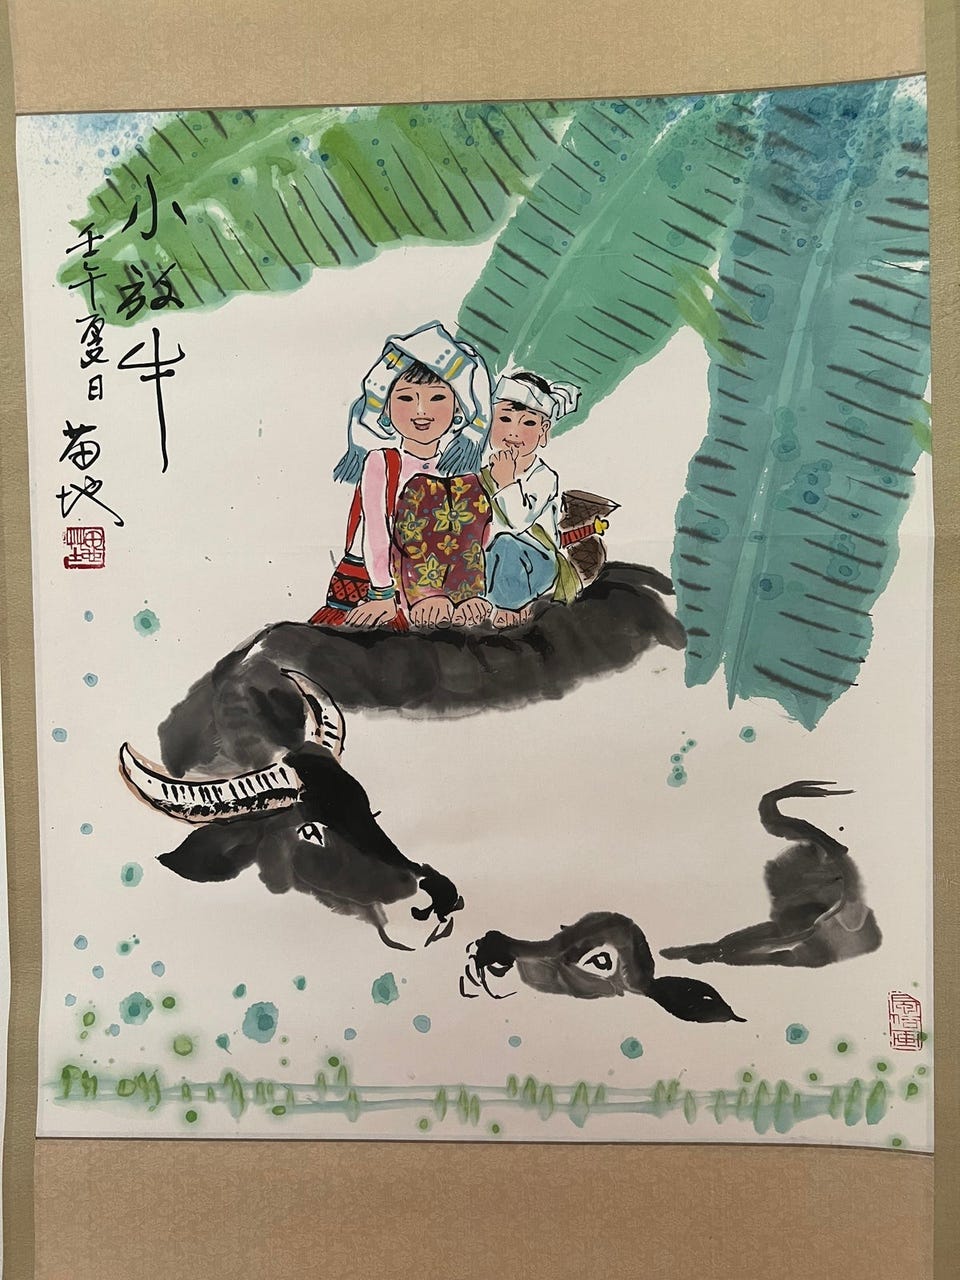 小放牛
壬午夏日 苗地